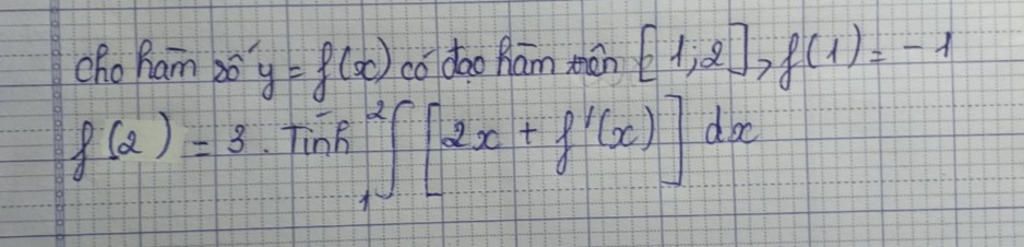 Cho hàm số y = f(x) có đạo hàm trên [1;2], f(1) = -1
f(2) = 3. Tính ₁²∫ [2x + f'(x)] dx